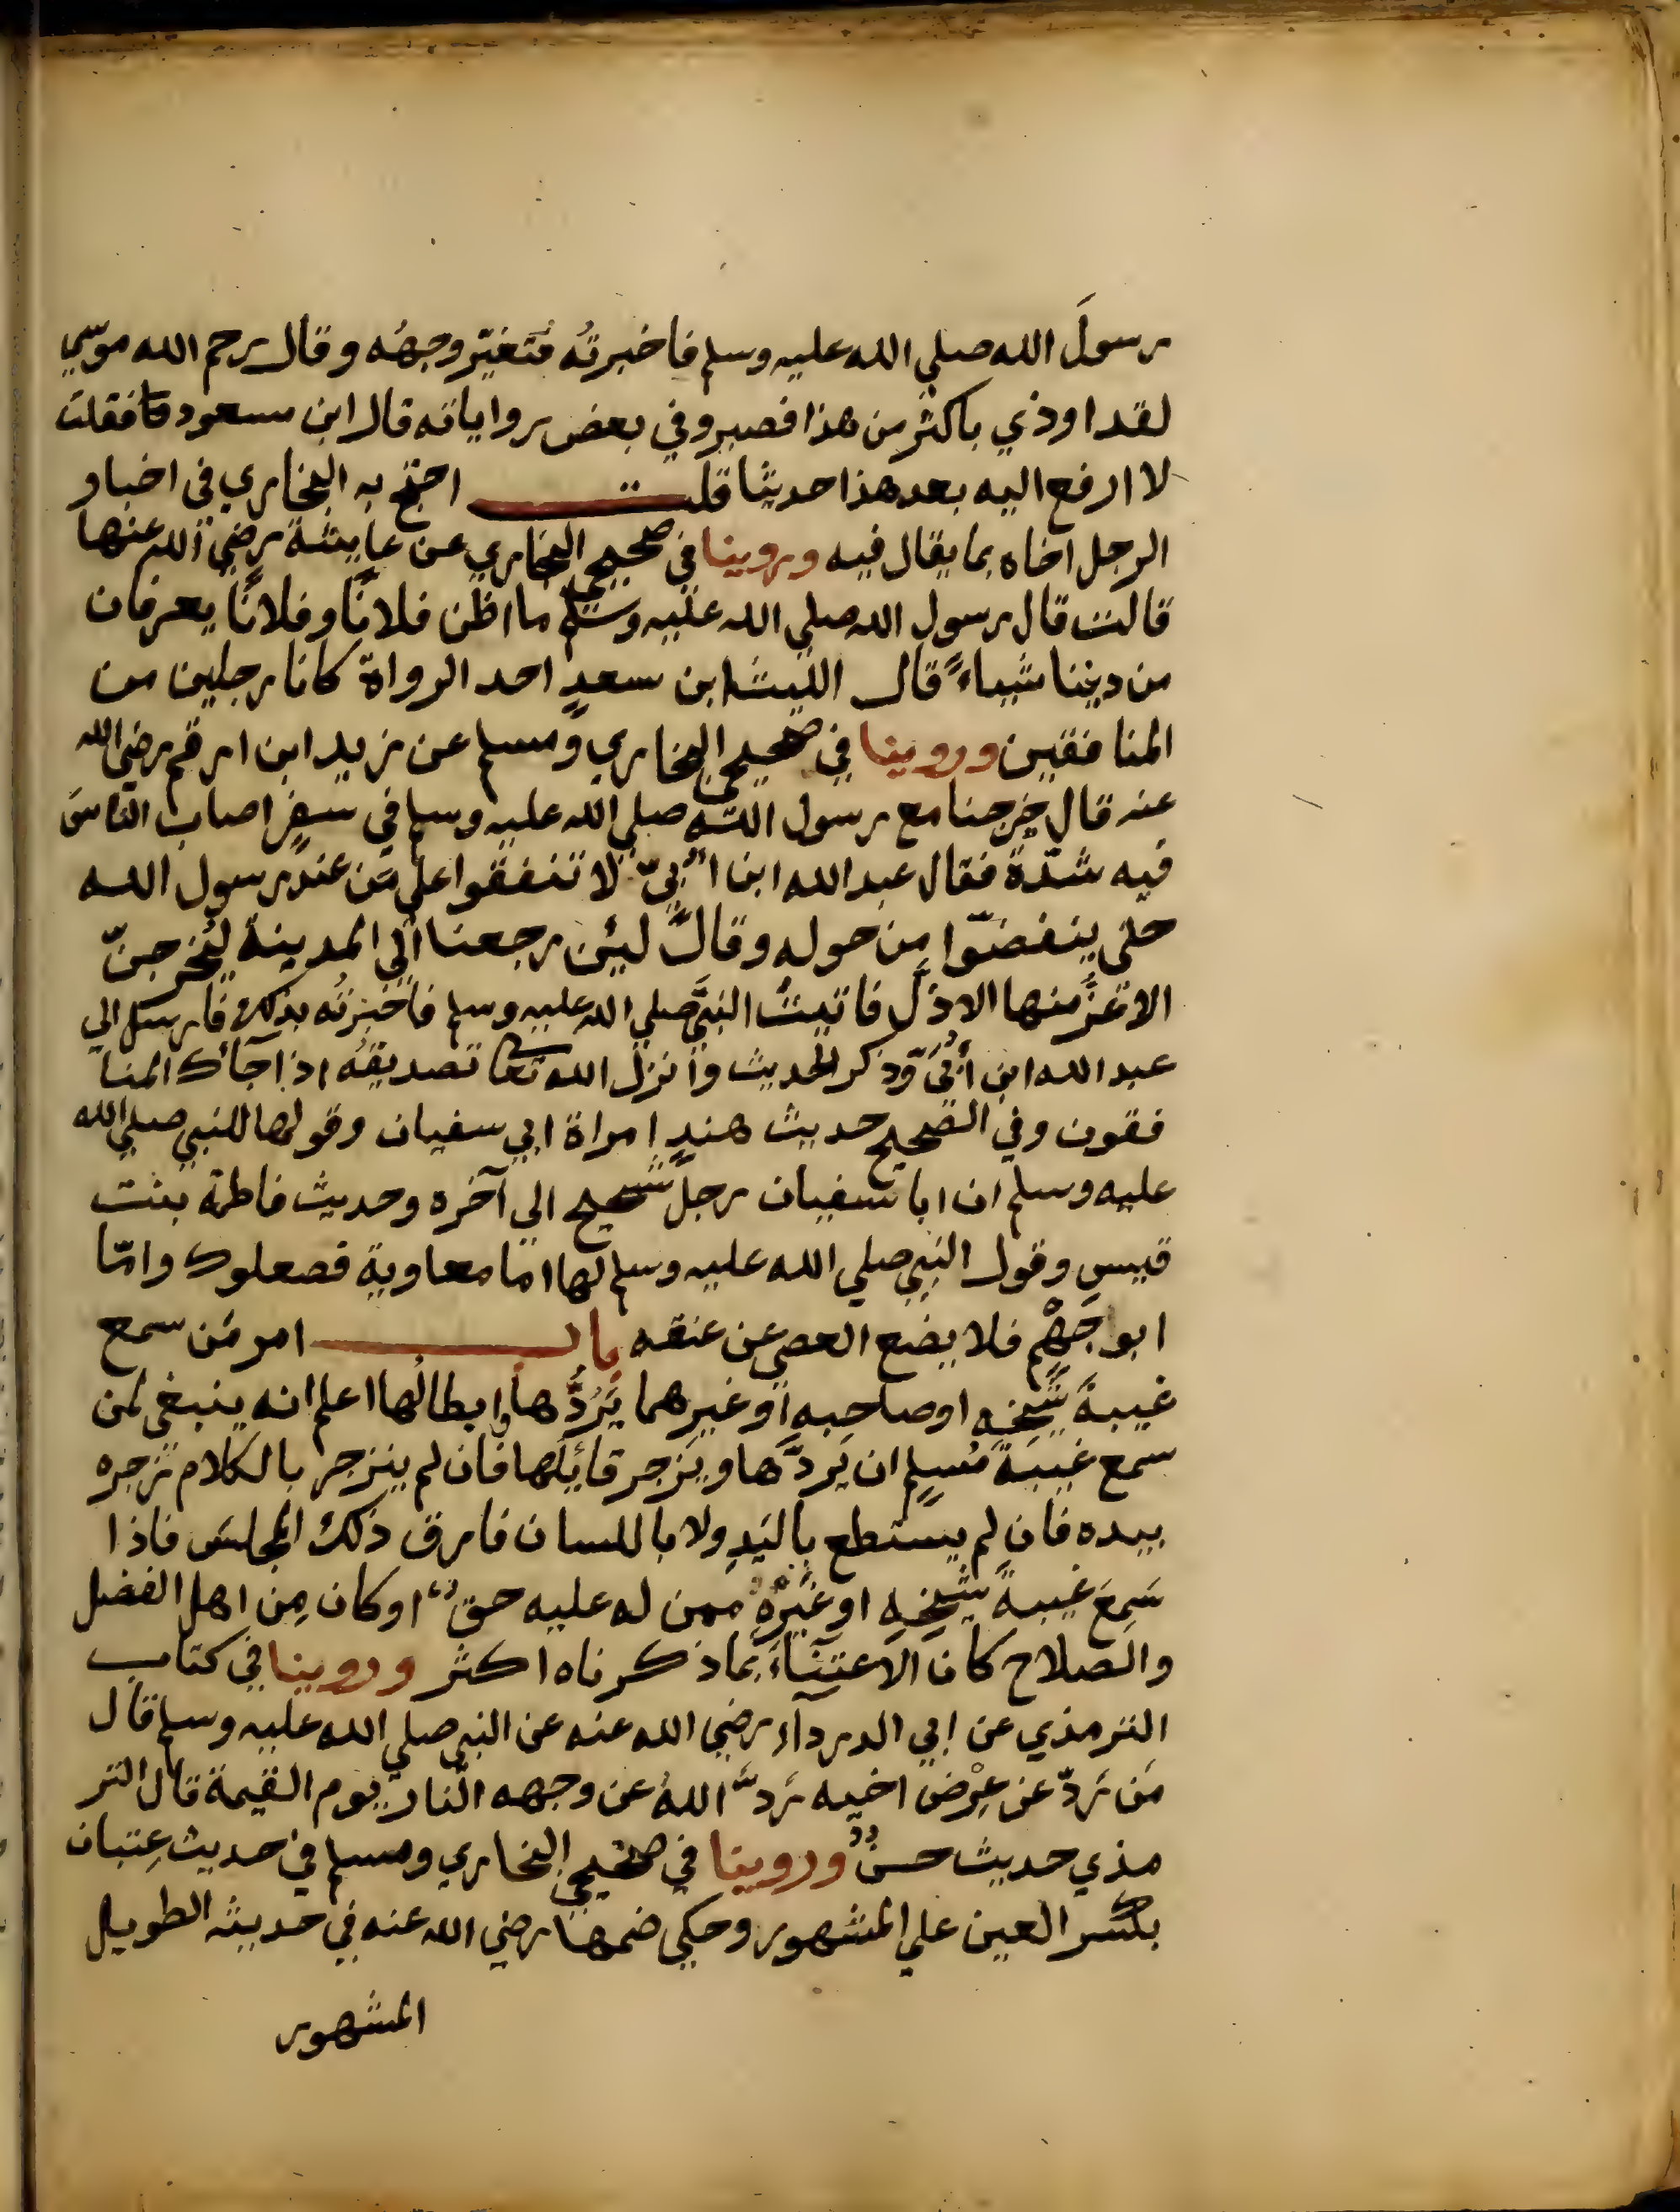 رسولَ الله صلي الله عليه وسلم فاخبرتُه فتَغيّر وجهُه وقال رحم الله موسي
لقد اوذي باكثر من هذا فصبر وفي بعض رواياته قال ابن مسعود فقلت
لا ارفع اليه بعد هذا حديثا قلت احتج به البخاري في اخبار
الرجل اخاه بما يقال فيه وروينا في صحيح البخاري عن عايشة رضي الله عنها
قالت قال رسول الله صلي الله عليه وسلم ما اظن فلانًا وفلانًا يعرفان
من ديننا شياءً قال الليث ابن سعدٍ احد الرواة كانا رجلين من
المنافقين وروينا في صحيحي البخاري ومسلم عن زيد ابن ارقم رضي الله
عنه قال خرجنا مع رسول الله صلي الله عليه وسلم في سفرٍ اصاب الناسَ
فيه شدّة فقال عبد الله ابن اُبيّ لا تنفقوا علي مَن عند رسول الله
حتي ينفضّوا مِن حوله وقال لئن رجعنا الي المدينة ليُخرجنّ
الاعزُّ منها الاذلّ فاتيتُ النبيَّ صلي الله عليه وسلم فاخبرتُه بذلك فارسل الي
عبد الله ابن اُبيّ وذكر الحديث وانزل الله تعا تصديقَه اذا جآك المنا
فقون وفي الصحيح حديث هندٍ امراة ابي سفيان وقولها للنبي صلي الله
عليه وسلم ان ابا سفيان رجلٌ شحيح الي آخره وحديث فاطمة بنت
قيسٍ وقول النبي صلي الله عليه وسلم لها اما معاوية فصعلوك وامّا
ابو جَهْم فلا يضع العصي عن عنقه باب امر مَن سمع
غيبةَ شيخِهِ او صاحبِهِ او غيرِهما يَرُدُّها وابطالُها اعلم انه ينبغي لمن
سمع غيبةَ مُسلِمٍ ان يَردَّها ويزجر قائلَها فان لم ينزجر بالكلام زجره
بيده فان لم يستطع باليَدِ ولا باللسان فارق ذلك المجلسَ فاذا
سَمِعَ غيبةَ شيخِهِ او غيرُهُ ممن له عليه حقٌ او كان مِن اهل الفضل
والصلاح كان الاعتِنآءُ بما ذكرناه اكثر وروينا في كتاب
الترمذي عن ابي الدردآء رضي الله عنه عن النبي صلي الله عليه وسلم قال
مَن رَدّ عن عِرْض اخيه رَدَّ اللهُ عن وجهه النّار يوم القيمة قال التر
مذي حديث حسنٌ وروينا في صحيحي البخاري ومسلم في حديث عِتبان
بكسر العين علي المشهور وحكي ضمها رضي الله عنه في حديثه الطويل
المشهور